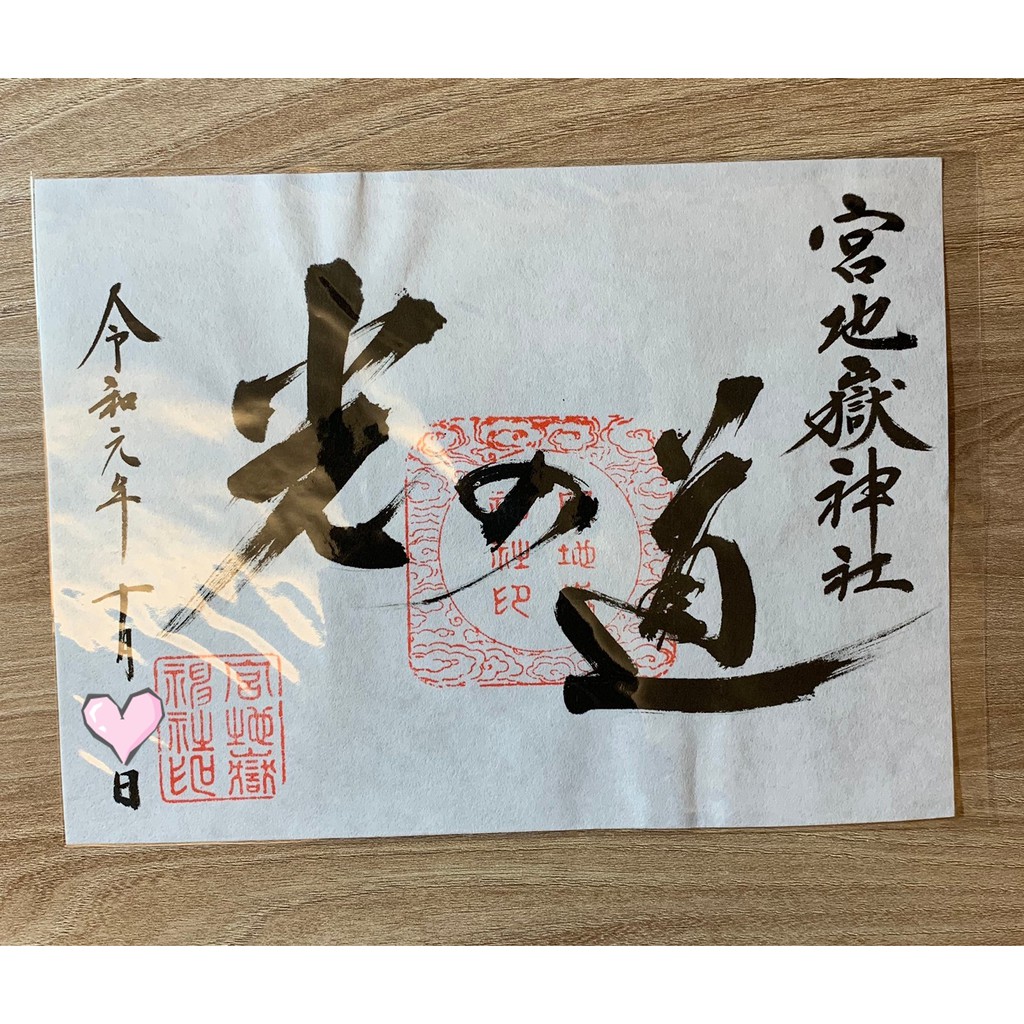 宮地嶽神社
光の道
宮地
神社印
令和元年十月
日
宮地嶽
神社印